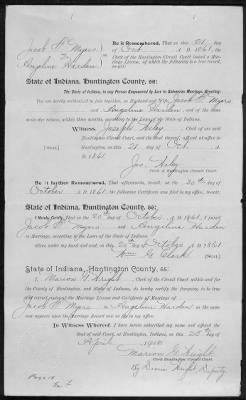 Jacob P. Myers
to
Angeline Harden
Be it Remembered, That on this 21
day of Oct. A. D. 1861, the
Clerk of the Huntington Circuit Court issued a
Marriage License, of which the following is a true
record:
State of Indiana, Huntington County, ss:
The State of Indiana, to any Person Empowered by Law to Solemnize Marriage, Greeting:
You are hereby authorized to join together, as Husband and Wife, Jacob P. Myers
and Angeline Harden and of
these make due return, within three months, according to the Laws of the State of Indiana.
Witness, Joseph Wiley, Clerk of our said
Huntington Circuit Court, and the Seal thereof, affixed at office in
Huntington, this 21 day of Oct.
A. D. 1861
Jos. Wiley
Clerk of Huntington Circuit Court.
Be it further Remembered, That afterwards, to-wit: on the 26th day of
October A. D. 1861, the following Certificate was filed in my office, to-wit:
State of Indiana, Huntington County, ss:
I Hereby Certify, That on the 20th day of October A. D. 1861, I joined
Jacob P. Myers and Angeline Harden
in Marriage, according to the Laws of the State of Indiana.
Given under my hand and seal, on this 25th day of October A. D. 1861
Wm G. Clark
State of Indiana, Huntington County, ss:
I, Marion G. Wright, Clerk of the Circuit Court within and for
the County of Huntington, and State of Indiana, do hereby certify the foregoing to be
true and correct copies of the Marriage License and Certificate of Marriage of
Jacob P. Myers to Angeline Harden
as appears upon the Marriage Record now on file in my office.
In Witness Whereof, I have hereunto subscribed my name and affixed the
seal of said Court, at my office this 25th day of
April
Marion G. Wright
Clerk Huntington Circuit Court.
By Wright Deputy
Page